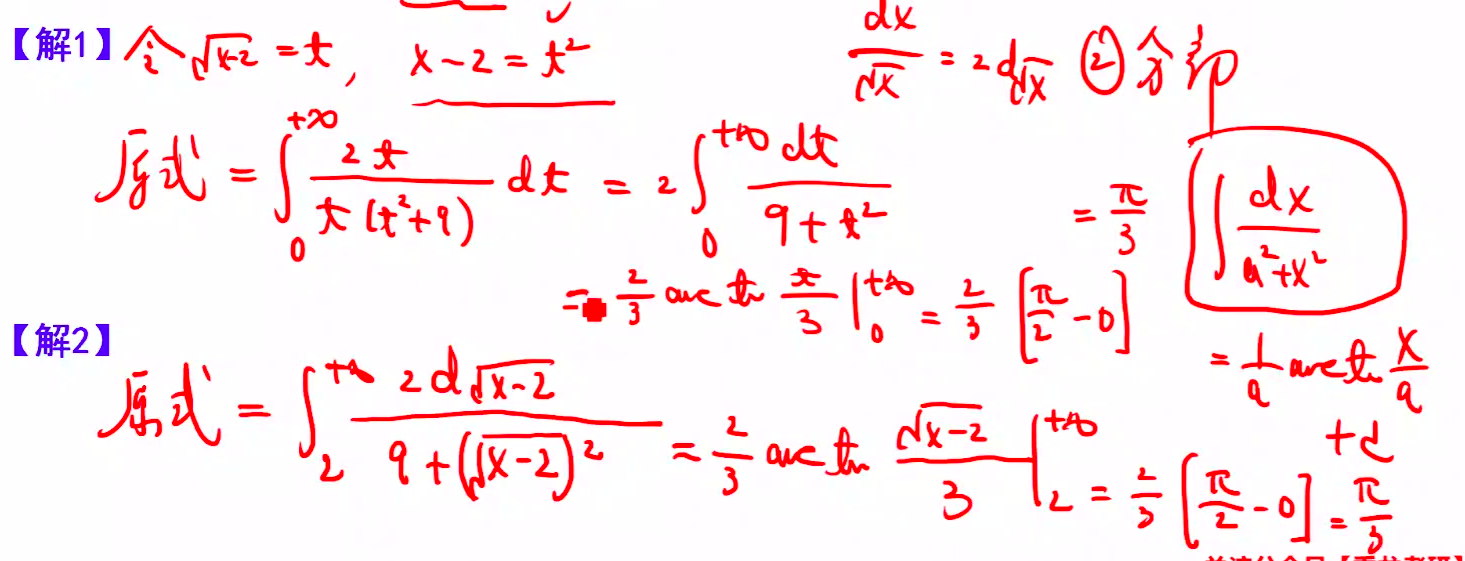 【解1】令√(x-2) = t, x-2 = t²
dx/√x = 2d√x ②分部
原式 = ∫₀^{+∞} 2t/(t(t²+9)) dt = 2∫₀^{+∞} dt/(9+t²)
= π/3
∫ dx/(a²+x²)
= 2/3 arctan t/3 |₀^{+∞} = 2/3 [π/2 - 0]
= 1/a arctan x/a
+c
【解2】
原式 = ∫₂^{+∞} 2d√(x-2)/(9+(√(x-2))²) = 2/3 arctan √(x-2)/3 |₂^{+∞} = 2/3 [π/2 - 0] = π/3